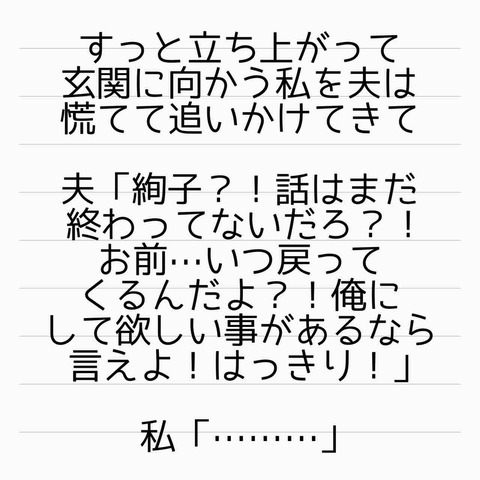 すっと立ち上がって
玄関に向かう私を夫は
慌てて追いかけてきて
夫「絢子？！話はまだ
終わってないだろ？！
お前…いつ戻って
くるんだよ？！俺に
して欲しい事があるなら
言えよ！はっきり！」
私「………」